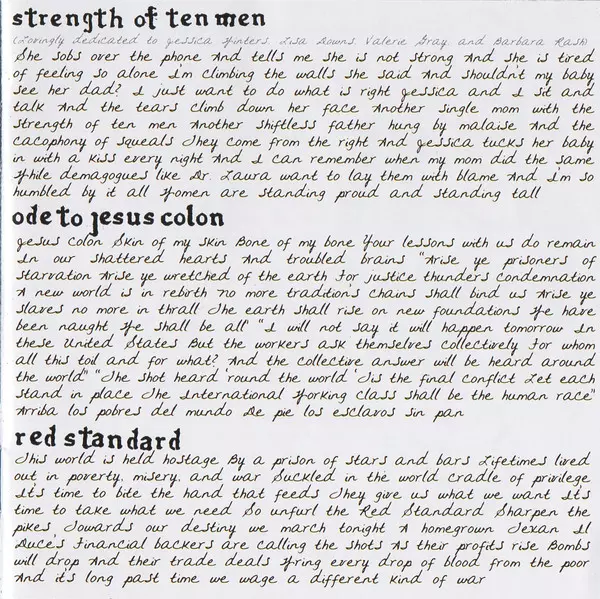 strength of ten men
(Lovingly dedicated to Jessica Winters, Lisa Downs, Valerie Gray, and Barbara Rash)
She sobs over the phone And tells me she is not strong And she is tired
of feeling so alone I'm climbing the walls she said And shouldn't my baby
see her dad? I just want to do what is right Jessica and I sit and
talk And the tears climb down her face Another single mom with the
strength of ten men Another shiftless father hung by malaise And the
cacophony of squeals They come from the right And Jessica tucks her baby
in with a kiss every night And I can remember when my mom did the same
While demagogues like Dr. Laura want to lay them with blame And I'm so
humbled by it all Women are standing proud and standing tall
ode to jesus colon
Jesus Colon Skin of my skin Bone of my bone Your lessons with us do remain
In our shattered hearts And troubled brains "Arise ye prisoners of
starvation Arise ye wretched of the earth For justice thunders condemnation
A new world is in rebirth No more tradition's chains shall bind us Arise ye
slaves no more in thrall The earth shall rise on new foundations We have
been naught We shall be all" "I will not say it will happen tomorrow In
these United States But the workers ask themselves collectively For whom
all this toil and for what? And the collective answer will be heard around
the world" "The shot heard 'round the world 'Tis the final conflict Let each
stand in place The International Working class shall be the human race"
Arriba los pobres del mundo De pie los esclavos sin pan
red standard
This world is held hostage By a prison of stars and bars Lifetimes lived
out in poverty, misery, and war Suckled in the world cradle of privilege
It's time to bite the hand that feeds They give us what we want It's
time to take what we need So unfurl the Red Standard Sharpen the
pikes Towards our destiny we march tonight A homegrown Texan Il
Duce's Financial backers are calling the shots As their profits rise Bombs
will drop And their trade deals Wring every drop of blood from the poor
And it's long past time we wage a different kind of war